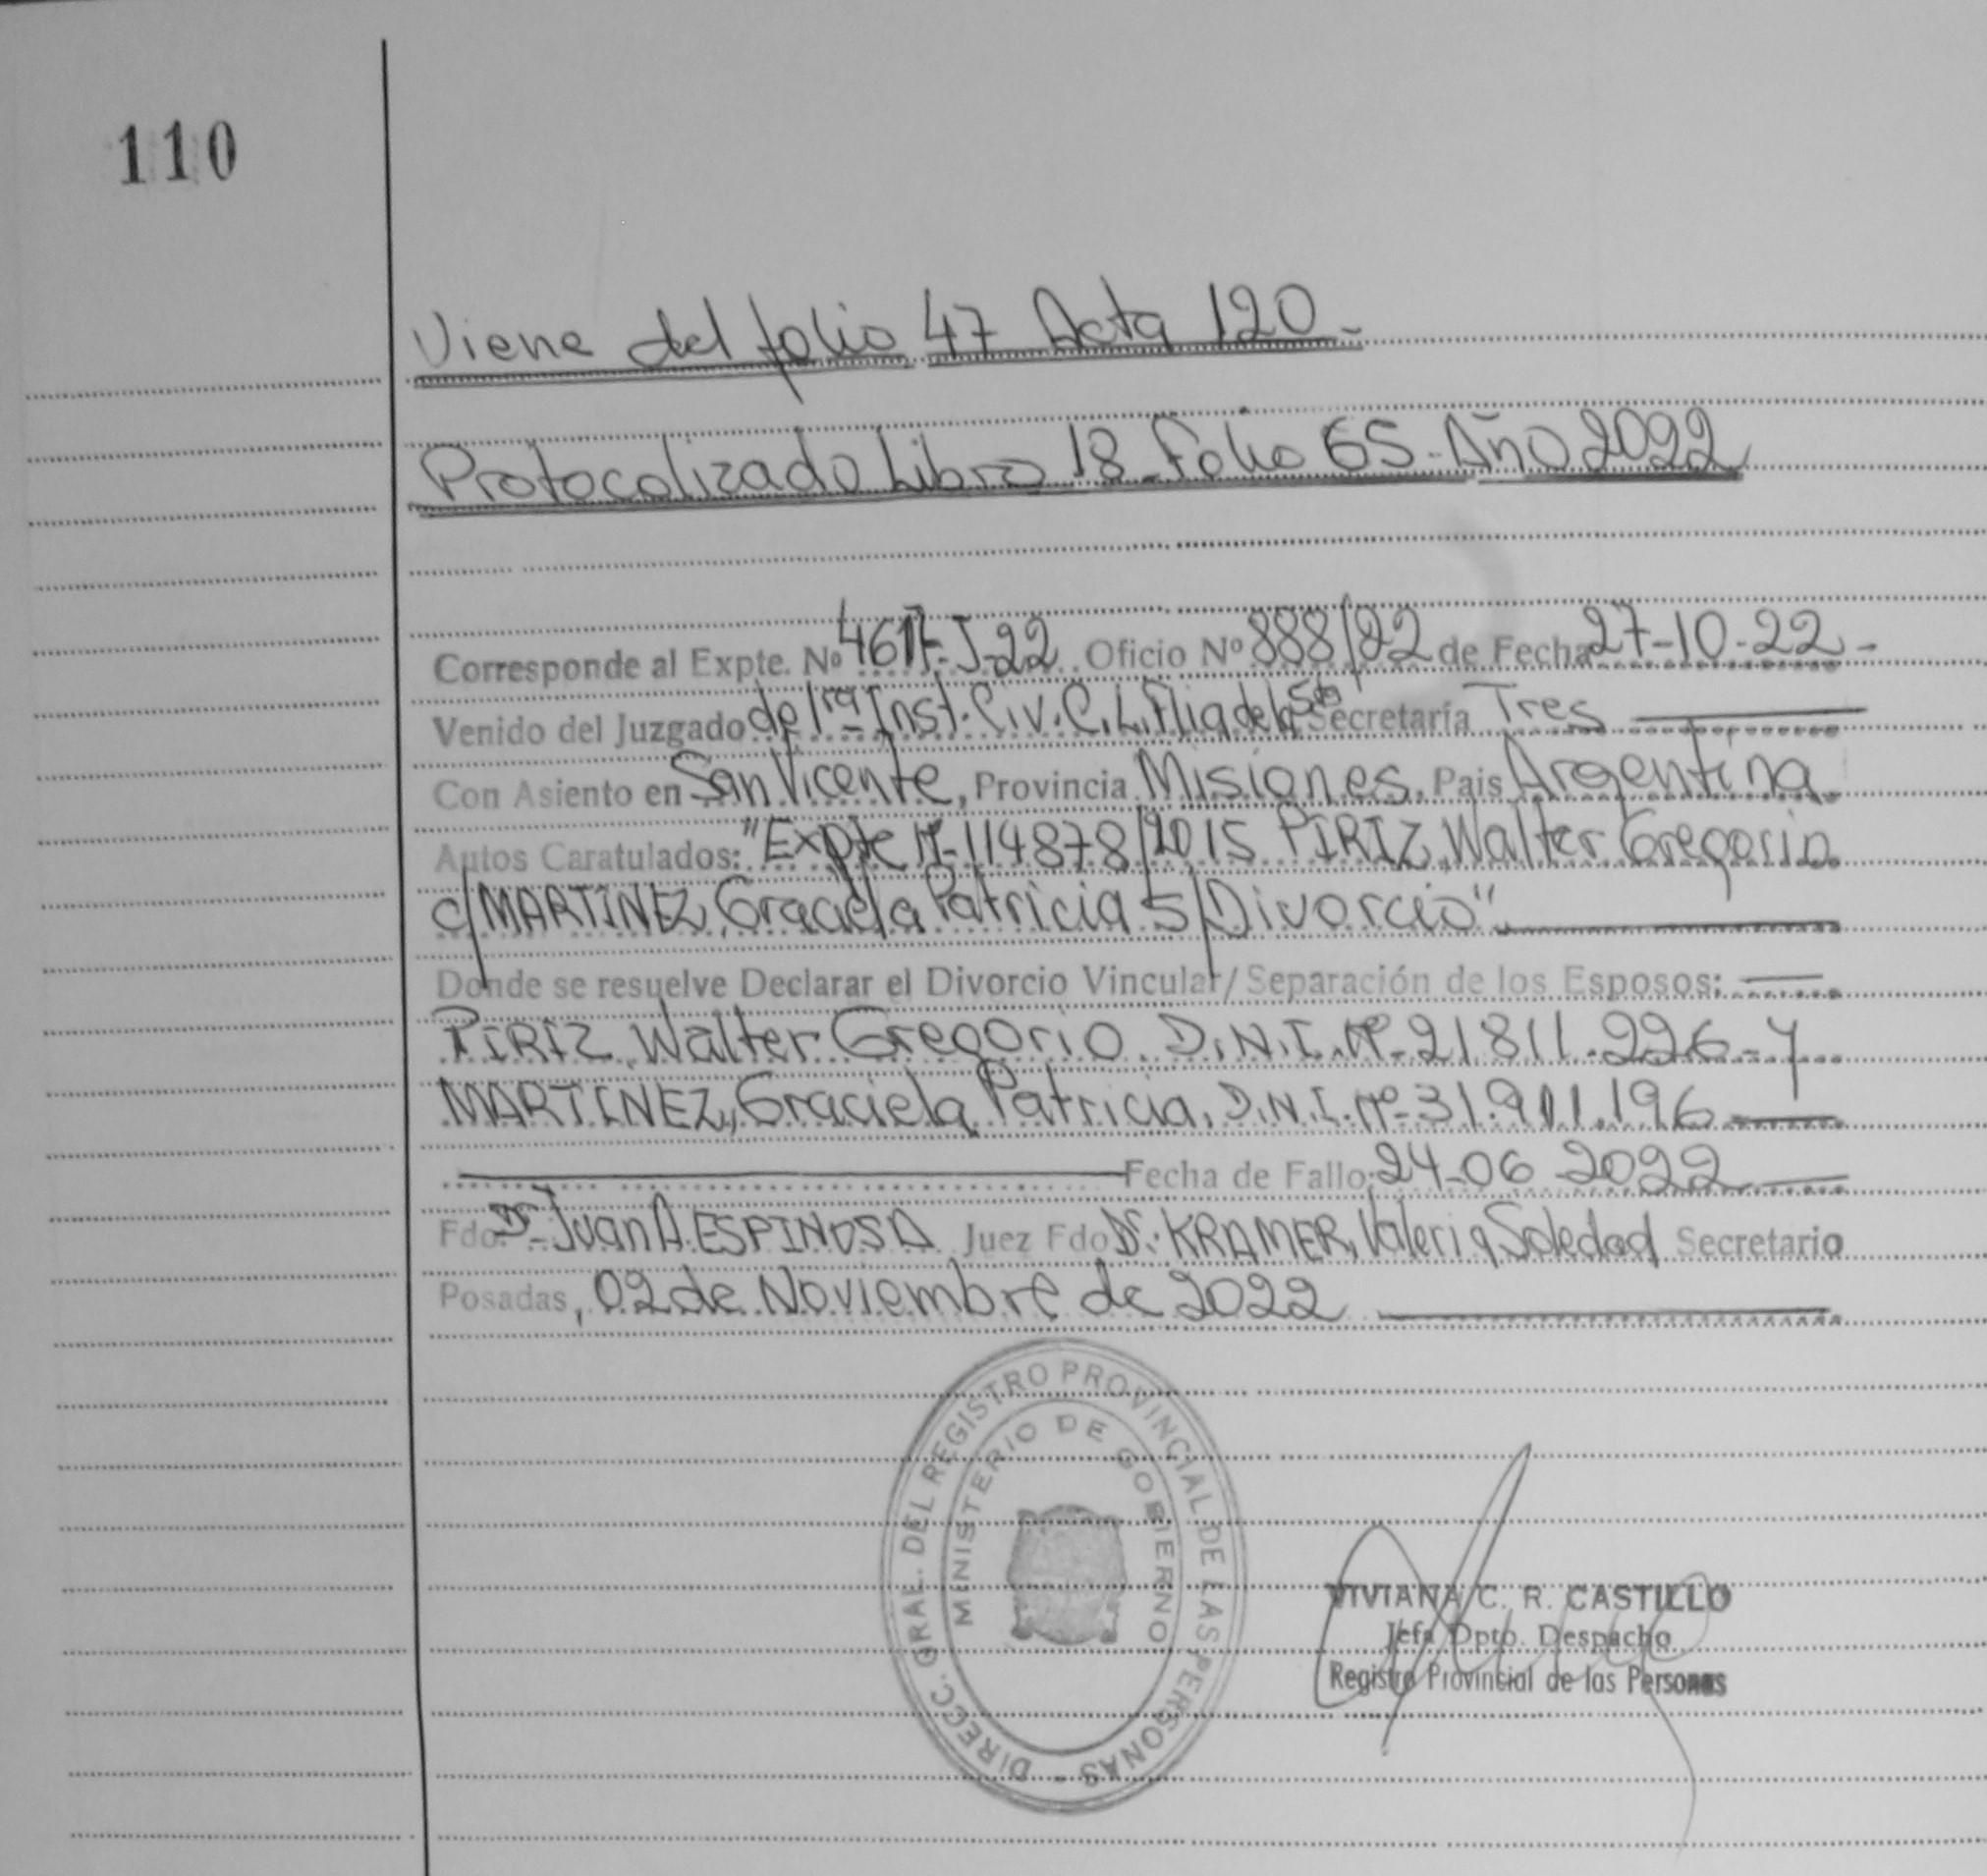 110
Viene del folio 47 Acta 120.-
Protocolizado Libro 18 - Folio 65 - Año 2022
Corresponde al Expte. Nº 4617-J-22 Oficio Nº 888/22 de Fecha 27-10-22-
Venido del Juzgado de 1ra Inst. Civ. C. L. Flia de la 5ta Secretaría Tres
Con Asiento en San Vicente, Provincia Misiones, Pais Argentina
Autos Caratulados: "Expte Nº 114878/2015 PIRIZ, Walter Gregorio
c/MARTINEZ, Graciela Patricia S/Divorcio".
Donde se resuelve Declarar el Divorcio Vincular/Separación de los Esposos:
PIRIZ, Walter Gregorio. D.N.I. Nº 21811.226 - y
MARTINEZ, Graciela Patricia. D.N.I. Nº 31.911.196
Fecha de Fallo: 24-06-2022
Fdo: Dr. Juan A. ESPINOSA Juez Fdo Dr. KRAMER, Valeria Soledad Secretario
Posadas, 02 de Noviembre de 2022
DIRECC. GRAL. DEL REGISTRO PROVINCIAL DE LAS PERSONAS -
MINISTERIO DE GOBIERNO
VIVIANA C. R. CASTILLO
Jefa Dpto. Despacho
Registro Provincial de las Personas